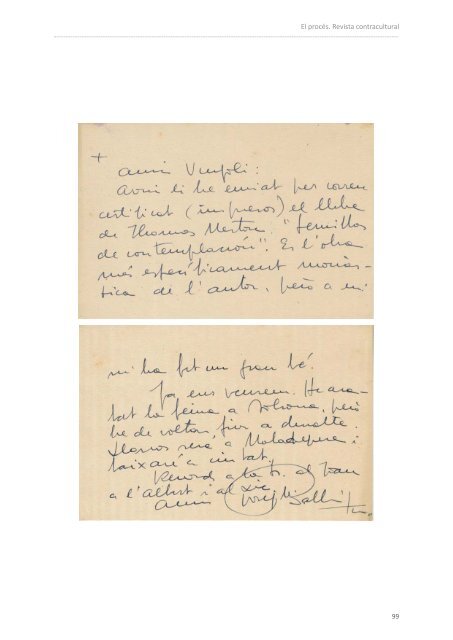 El procés. Revista contracultural
+
Amic Vinyoli:
Avui li he enviat per correu
certificat (impresos) el llibre
de Thomas Merton: "Semillas
de contemplación". Es l'obra
més específicament monàs-
tica de l'autor, però a mi
mi ha fet un gran bé.
Ja ens veurem. He aca-
bat la feina a Solsona, però
he de voltar, fins a dimarts.
Llavors seré a Matadepera i
baixaré a ciutat.
Records a
a l'Albert i al
Amic
99